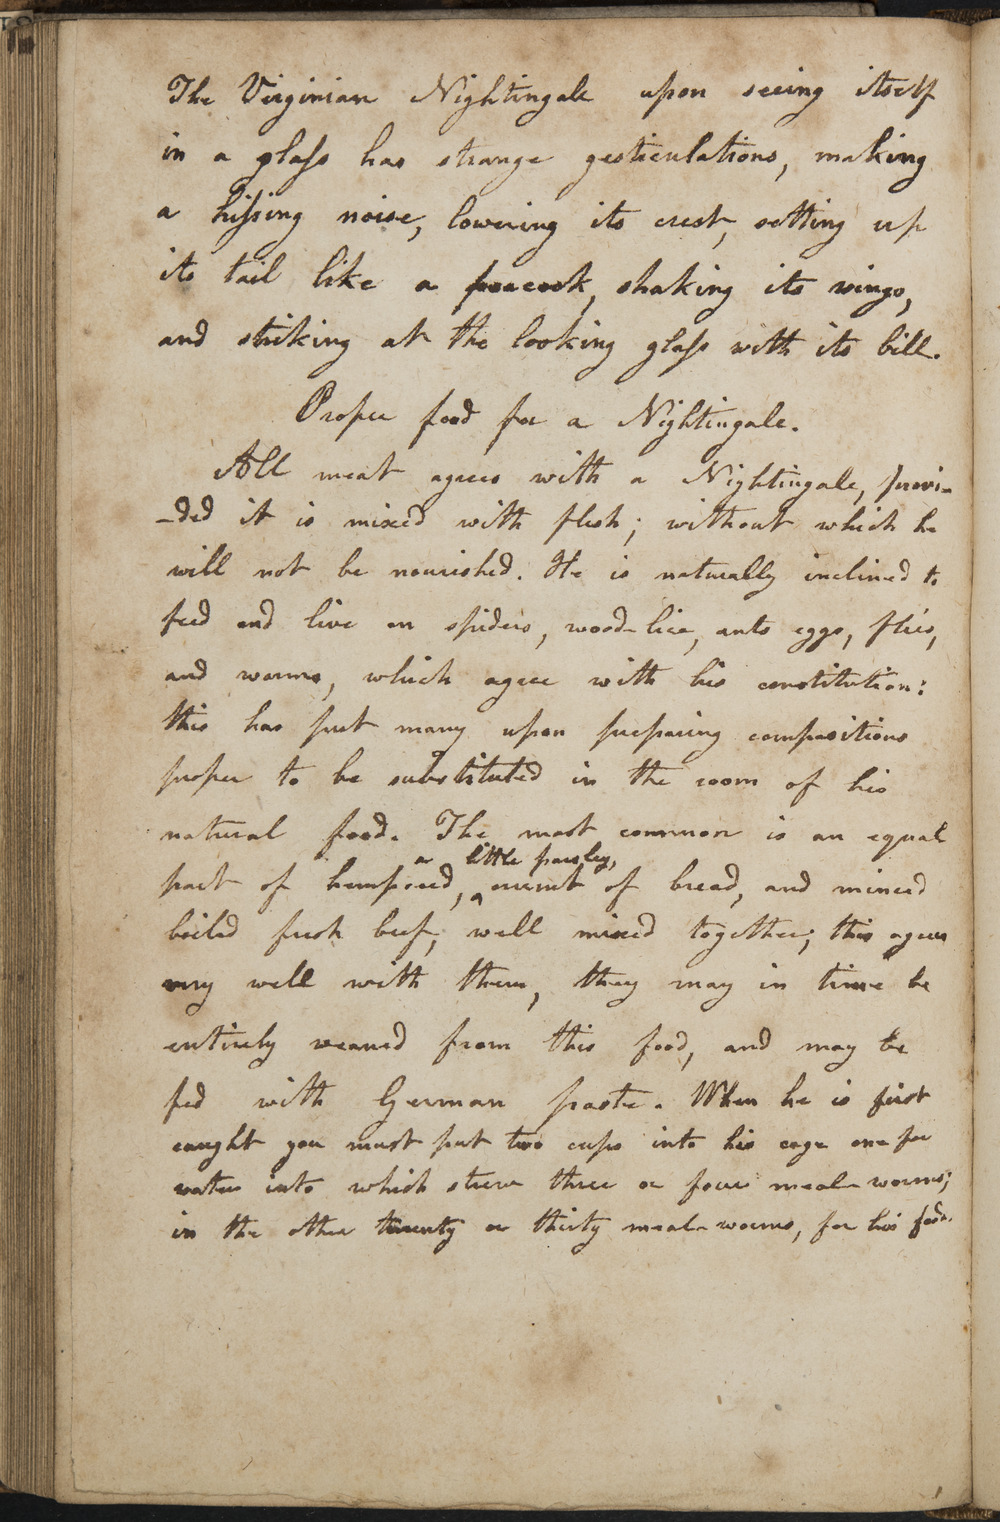 The Virginian Nightingale upon seeing itself
in a glaſs has strange gesticulations, making
a hiſsing noise, lowering its crest, setting up
its tail like a peacock, shaking its wings,
and striking at the looking glaſs with its bill.
Proper food for a Nightingale.
All meat agrees with a Nightingale, provi-
-ded it is mixed with flesh; without which he
will not be nourished. He is naturally inclined to
feed and live on spiders, wood-lice, ants eggs, flies,
and worms, which agree with his constitution:
this has put many upon preparing compositions
proper to be substituted in the room of his
natural food. The most common is an equal
a little parsley,
part of hempseed, crumb of bread, and minced
boiled fresh beef, well mixed together; this agrees
very well with them, they may in time be
entirely weaned from this food, and may be
fed with German paste. When he is first
caught you must put two cups into his cage one for
water into which strew three or four meal-worms;
in the other twenty or thirty meal-worms, for his food.